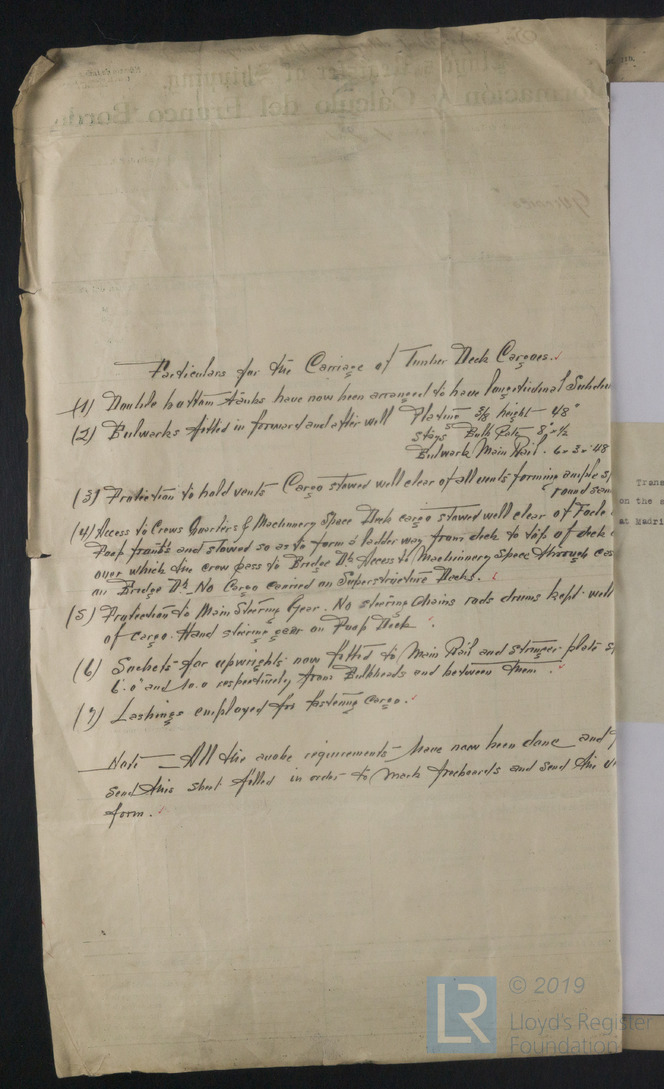 Particulars for the Carriage of Timber Deck Cargoes.
(1) Double bottom tanks have now been arranged to have longitudinal
(2) Bulwarks fitted in forward and after well Plating 3/8 height 48"
Stays Bulb Plate 8" × 1/2
Bulwark Main Rail. 6 × 3 × 48
(3) Protection to hold vents Cargo stowed well clear of all vents forming ample
round
(4) Access to Crews Quarters & Machinery Space Deck cargo stowed well clear of Focle
Poop fronts and stowed so as to form a ladder way from deck to top of deck
over which the crew pass to Bridge Dk Access to Machinery space through
on Bridge Dk. No Cargo carried on Superstructure Decks.
(5) Protection to Main Steering Gear. No steering chains rods drums kept well
of cargo. Hand steering gear on Poop Deck.
(6) Sockets for uprights now fitted to Main Rail and stringer plate
6'.0" and 10.0 respectively from Bulkheads and between them.
(7) Lashings employed for fastening cargo.
Note All the avobe requirements have now been done and
send this sheet filled in order to mark freeboards and send the
form.
Lloyd's Register of Shipping
Cálculo del Franco Bordo
Trans
on the
at Madri
LR
© 2019
Lloyd's Register
Foundation